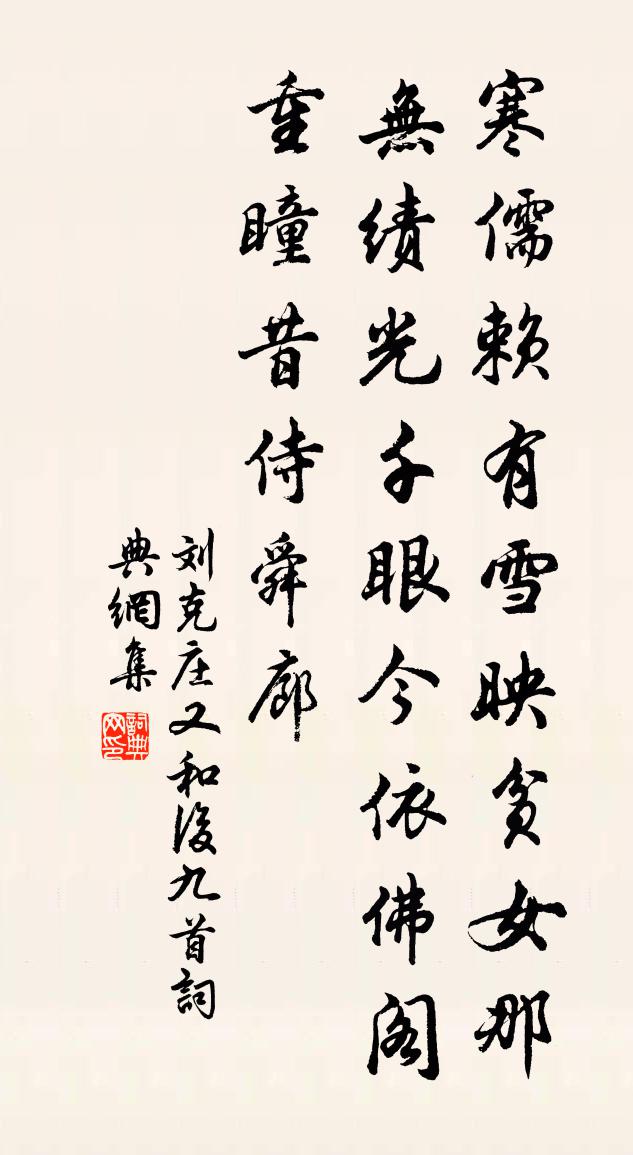 寒儒賴有雪映貧女那
無績光千眼今依佛閣
重瞳昔侍舜廊
刘克庄又和後九首詞
典網集
詞典网印